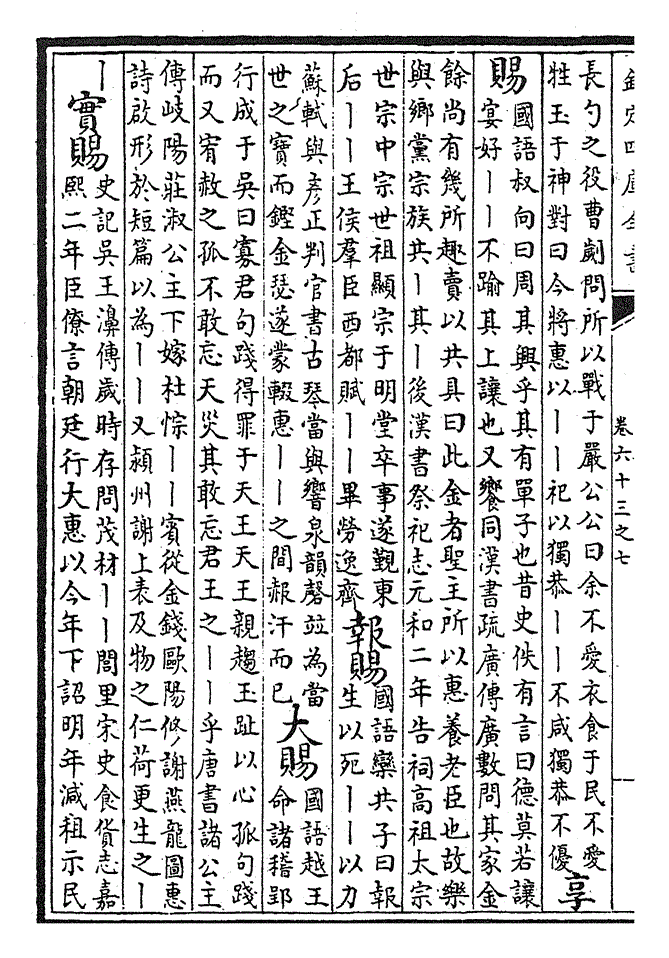 欽定四庫全書
卷六十三之七
長勺之役曹劌問所以戰于嚴公公曰余不愛衣食于民不愛
牲玉于神對曰今將惠以丨丨祀以獨恭丨丨不咸獨恭不優
享
賜
國語叔向曰周其興乎其有單子也昔史佚有言曰德莫若讓
宴好丨丨不踰其上讓也又饗同漢書疏廣傳廣數問其家金
餘尚有幾所趣賣以共具曰此金者聖主所以惠養老臣也故樂
與鄉黨宗族共丨其丨後漢書祭祀志元和二年告祠高祖太宗
世宗中宗世祖顯宗于明堂卒事遂覲東
后丨丨王侯羣臣西都賦丨丨畢勞逸齊
報賜
國語欒共子曰報
生以死丨丨以力
蘇軾與彥正判官書古琴當與響泉韻磬竝為當
世之寶而鏗金瑟瑟遂蒙輟惠丨丨之間赧汗而已
大賜
國語越王
命諸稽郢
行成于吳曰寡君句踐得罪于天王天王親趨王趾以心孤句踐
而又宥赦之孤不敢忘天災其敢忘君王之丨丨乎唐書諸公主
傳岐陽莊淑公主下嫁杜悰丨丨賓從金錢歐陽修謝燕龍圖惠
詩啟形於短篇以為丨丨又潁州謝上表及物之仁荷更生之丨
丨
實賜
史記吳王濞傳歲時存問茂材丨丨閭里宋史食貨志嘉
熙二年臣僚言朝廷行大惠以今年下詔明年減租示民